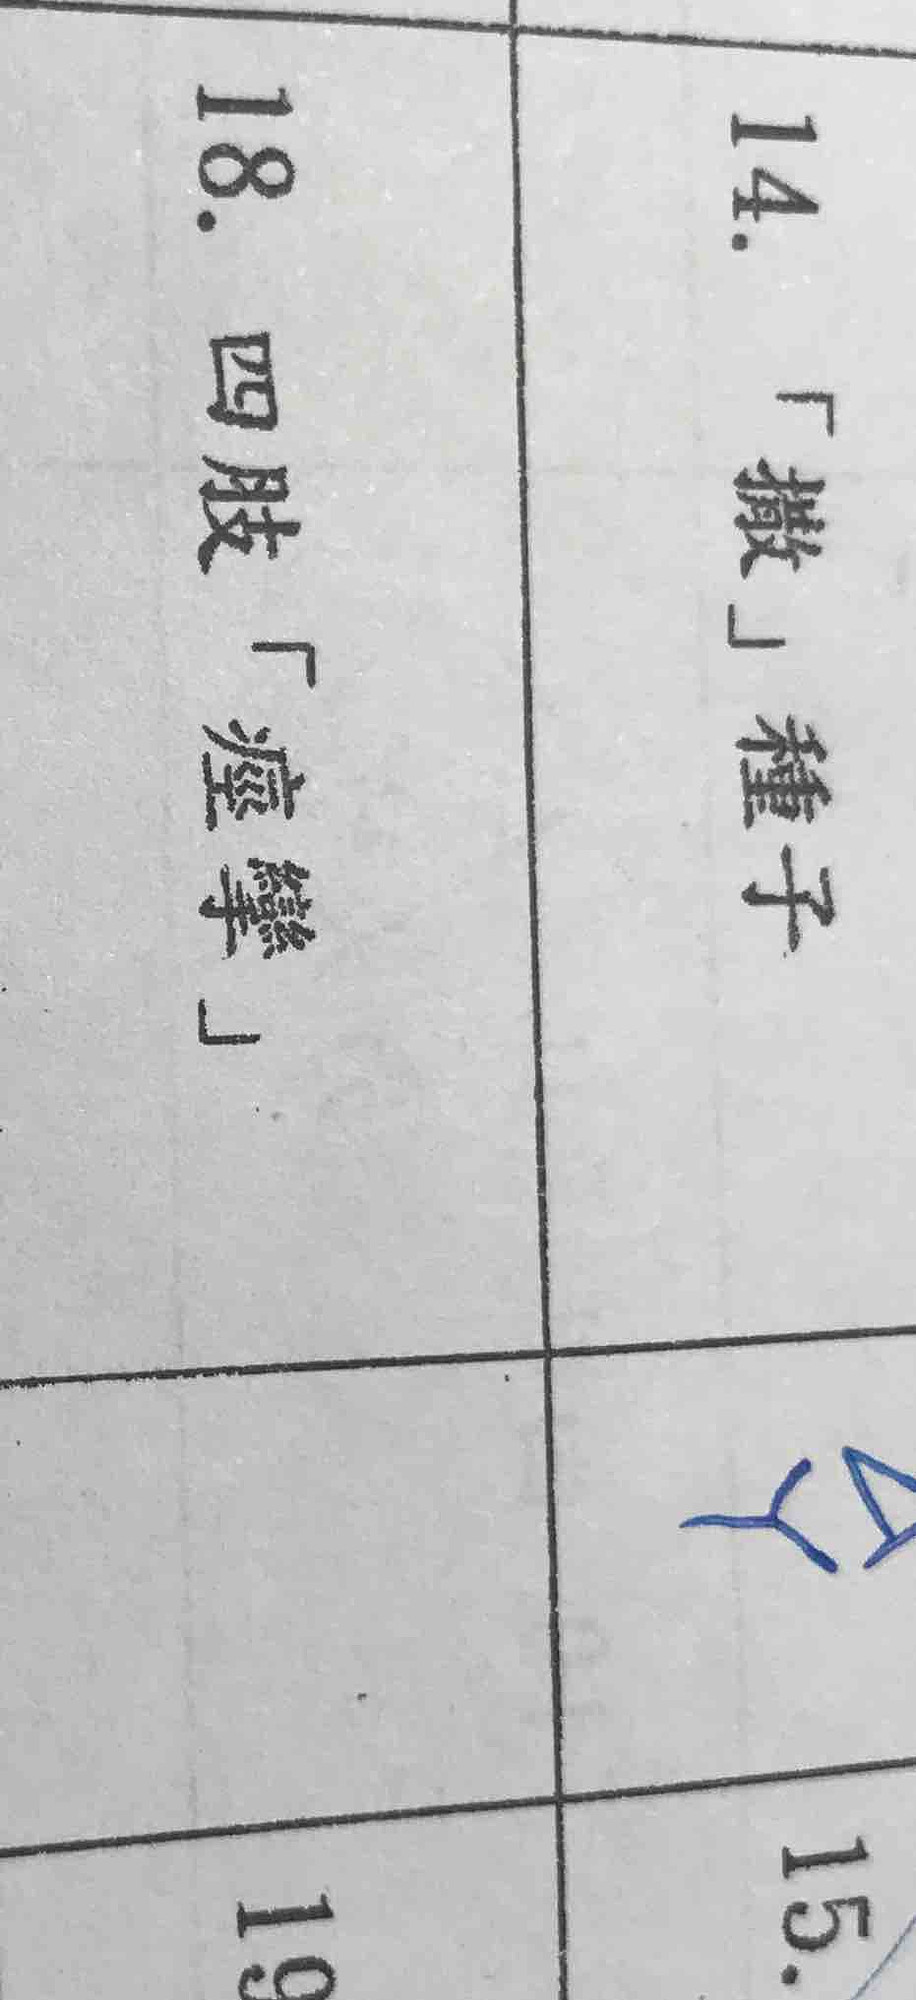 14. 「撒」種子
ㄙㄚ
15.
18. 四肢「痙攣」
19